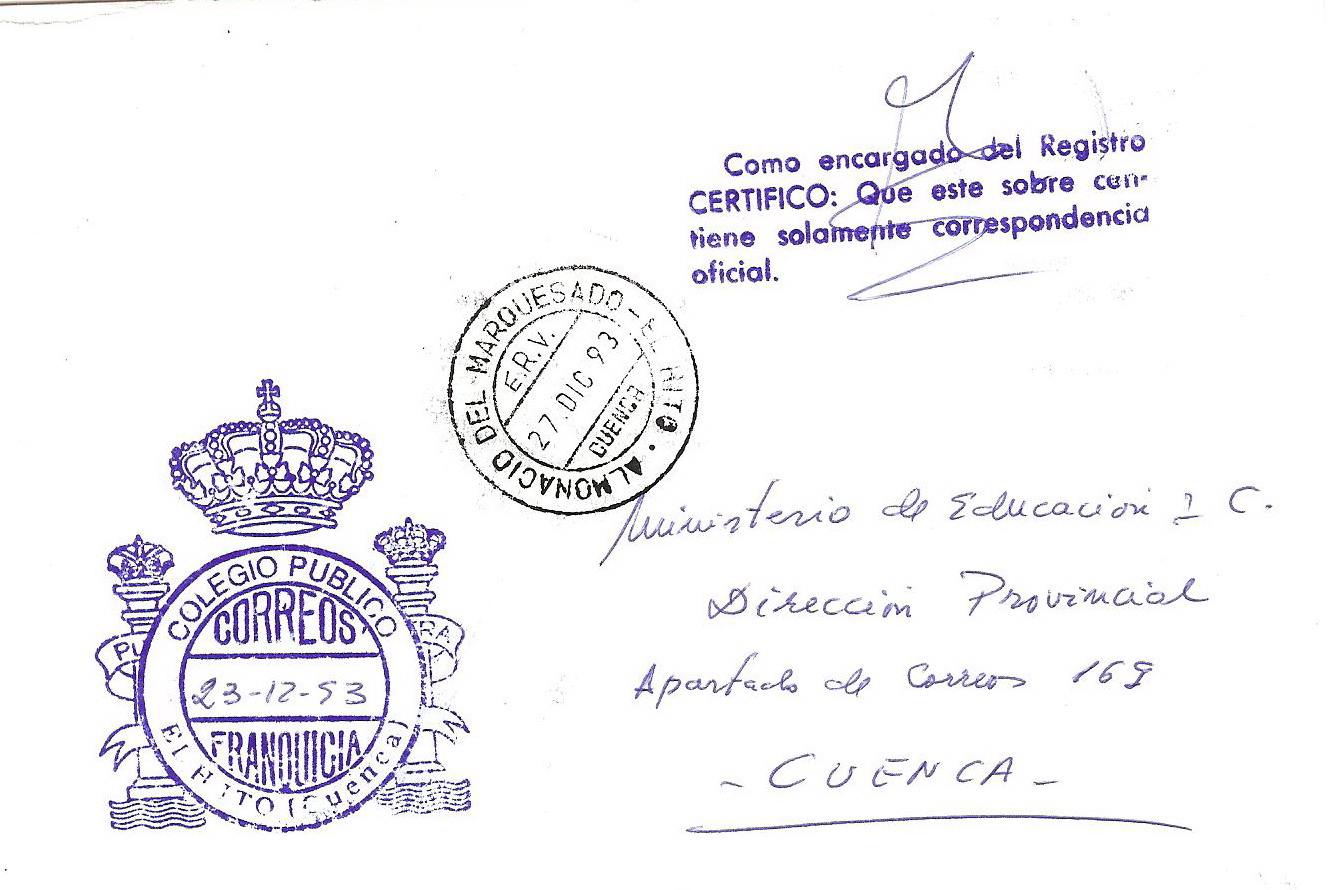 Como encargado del Registro
CERTIFICO: Que este sobre con-
tiene solamente correspondencia
oficial.
ALMONACID DEL MARQUESADO - EL HITO
E.R.V.
27 DIC 93
CUENCA
COLEGIO PUBLICO
CORREOS
23-12-93
FRANQUICIA
EL HITO (Cuenca)
PL
RA
Ministerio de Educación y C.
Dirección Provincial
Apartado de Correos 169
- CUENCA -